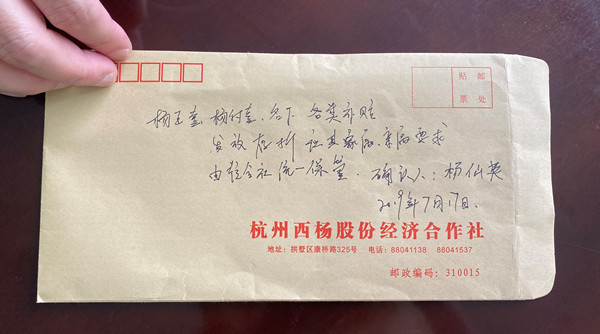 贴 邮
票 处
杨玉奎 杨付奎、名下 各类补贴
发放存折 让其家属、亲属要求
由经合社统一保管。确认人：杨仙英
2019年7月17日。
杭州西杨股份经济合作社
地址：拱墅区康桥路325号 电话：88041138 88041537
邮政编码：310015